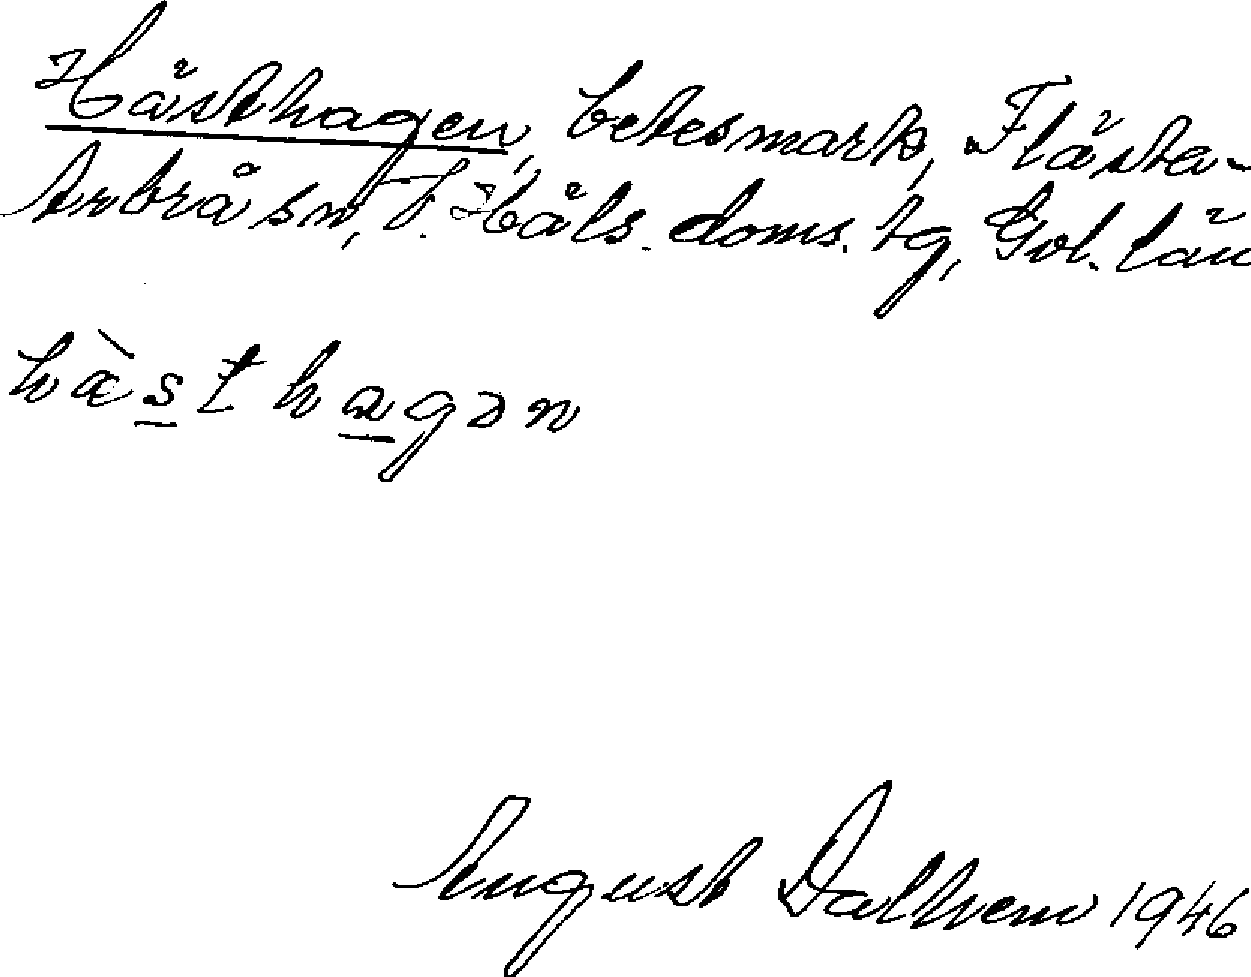 Hästhagen, betesmark, Flästa-
Arbrå sn, V. Häls. doms. tg, Gvl. län
hàsthagən
August Dalhem 1946